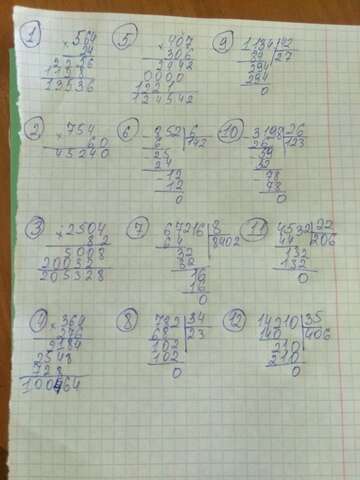 1
× 564
24
2256
1128
13536
2
× 754
60
45240
3
× 2504
82
5008
20032
205328
4
× 364
276
2184
2548
728
100464
5
× 407
306
2442
0000
1221
124542
6
852 6
6 142
25
24
12
12
0
7
67216 8
64 8402
32
32
16
16
0
8
782 34
68 23
102
102
0
9
1134 42
84 27
294
294
0
10
3198 26
26 123
59
52
78
78
0
11
4532 22
44 206
132
132
0
12
14210 35
140 406
210
210
0